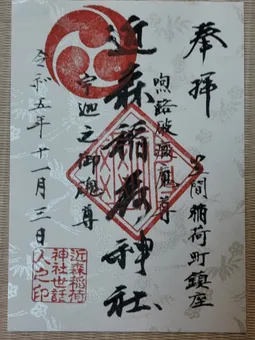 奉拝
稲荷町鎮座
近森稲荷神社
宇迦之御魂尊
令和五年十一月三日
近森稲荷
神社世話
人之印